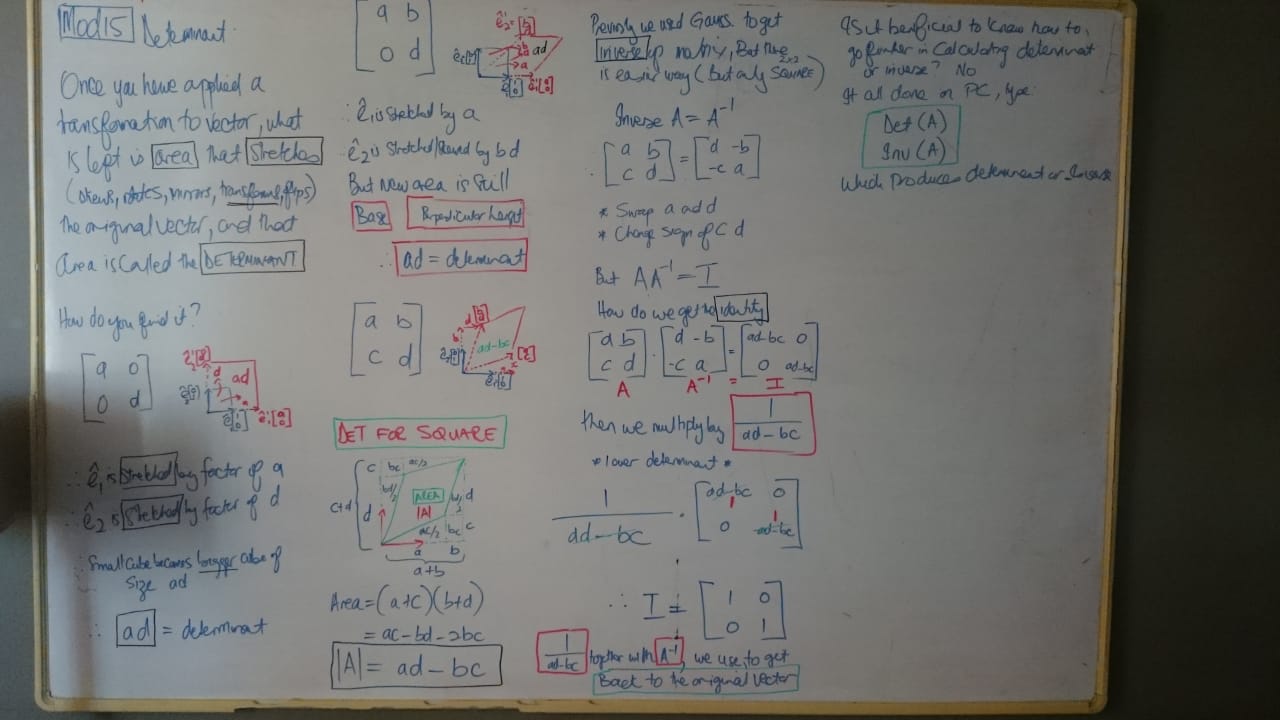 Mod15 Determinant
Once you have applied a
transformation to vector, what
is left is area that stretches
(skews, rotates, mirrors, transforms, flips)
the original vector, and that
area is called the DETERMINANT
How do you find it?
a 0
0 d
ê₂'[0 d]
d
ad
ê₂[0 1]
a
ê₁[1 0]
ê₁'[a 0]
∴ ê₁ is stretched by factor of a
∴ ê₂ is stretched by factor of d
∴ Small cube becomes bigger cube of
size ad
∴ ad = determinant
a b
0 d
ad
∴ ê₁ is stretched by a
ê₂ is stretched/skewed by bd
But new area is still
Base Perpendicular height
∴ ad = determinant
a b
c d
ad-bc
DET FOR SQUARE
c bc ac/2
bd/2
c+d d AREA bd/2 d
|A|
ac/2 bc c
a b
a+b
Area=(a+c)(b+d)
= ac-bd-2bc
|A| = ad - bc
Previously we used Gauss. to get
Inverse of matrix, But there 2x2
is easier way (But only SQUARE)
Inverse A = A⁻¹
[a b] = [d -b]
[c d] [-c a]
* Swap a add
* Change sign of c d
But AA⁻¹ = I
How do we get the identity
[a b] . [d -b] = [ad-bc 0]
[c d] [-c a] [0 ad-bc]
A A⁻¹ = I
then we multiply by 1/(ad-bc)
* 1 over determinant *
1/(ad-bc) . [ad-bc 0]
1 1
[0 ad-bc]
∴ I = [1 0]
[0 1]
1/(ad-bc) together with A⁻¹, we use to get
Back to the original vector
Is it benficial to know how to
go further in Calculating determinat
or inverse? No
It all done on PC, type:
Det (A)
Inv (A)
which produces determinent or Inverse